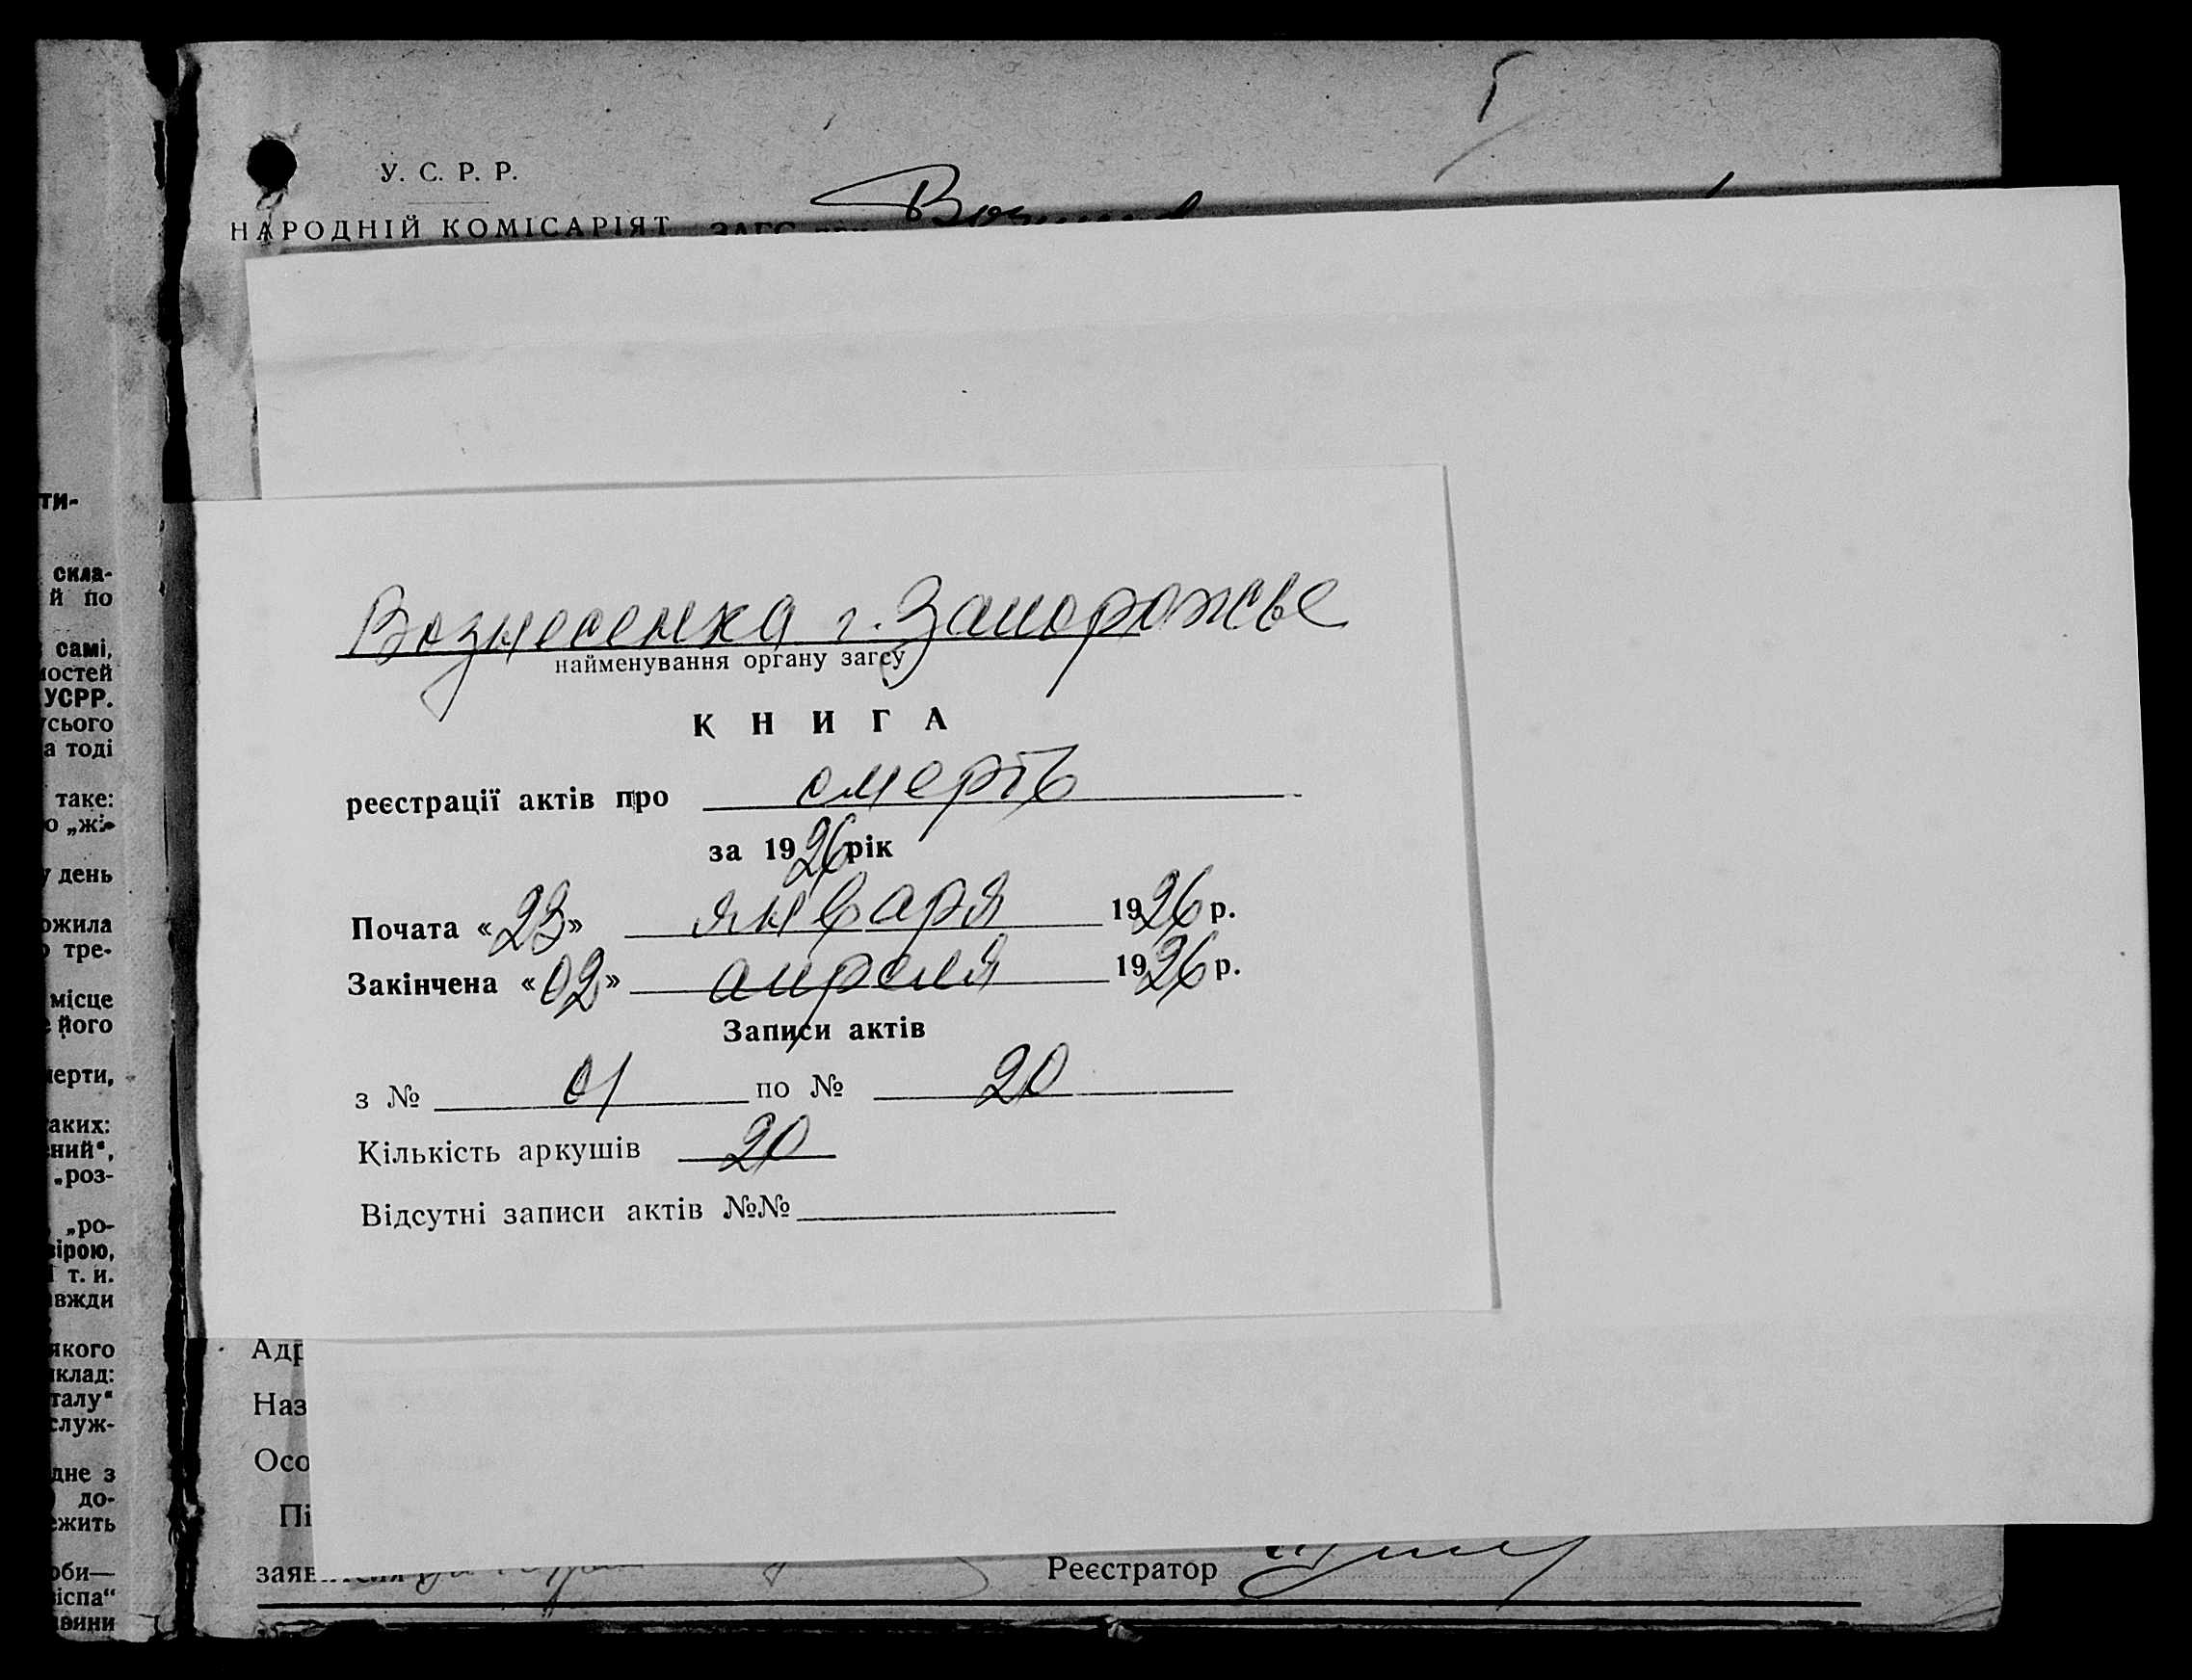 У. С. Р. Р.
НАРОДНІЙ КОМІСАРІЯТ
ти-
скла-
й по
самі,
ностей
УСРР.
усього
а тоді
таке:
о „жі-
у день
ожила
тре-
місце
його
мерти,
аких:
ений",
„роз-
„ро-
вірою,
т. и.
авжди
якого
иклад:
талу"
служ-
дне з
до-
ежить
оби—
віспа"
ивини
Вознесенка г. Запорожье
найменування органу загсу
КНИГА
реєстрації актів про смерть
за 1926 рік
Почата «23» января 1926 р.
Закінчена «02» апреля 1926 р.
Записи актів
з № 01 по № 20
Кількість аркушів 20
Відсутні записи актів №№
Адр
Наз
Осо
Пі
Реєстратор